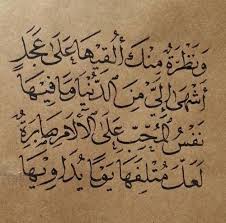 وَنَظْرَةٌ مِنْكَ أُلْفِيهَا عَلَى عَجَلٍ
أَشْهَى إِلَيَّ مِنَ الدُّنْيَا وَمَا فِيْهَا
نَفْسُ المُحِبِّ عَلَى الآلَامِ صَابِرَةٌ
لَعَلَّ مُتْلِفَهَا يَوْمًا يُدَاوِيْهَا